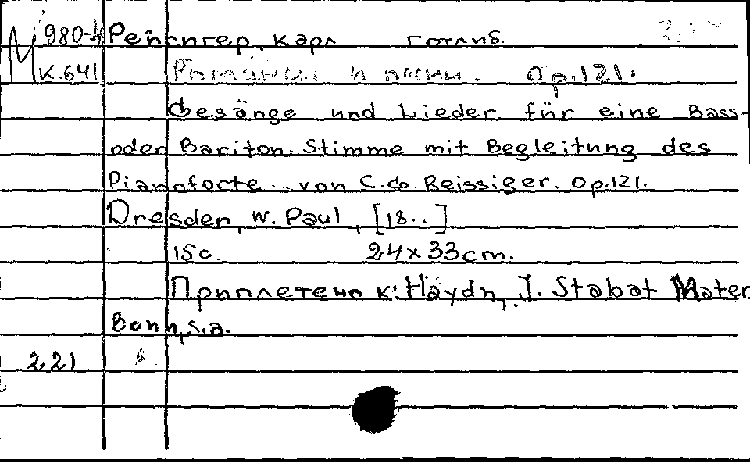 М 980-4 Рейсигер, Карл Готлиб.
К.641 Романсы и песни. Op.121.
Gesänge und Lieder für eine Bass-
oder Bariton Stimme mit Begleitung des
Pianoforte von C.G. Reissiger. Op.121.
Dresden, W. Paul, [18..]
15c. 24x33cm.
Приплетено к: Haydn, J. Stabat Mater
Bonn, s.a.
2.21